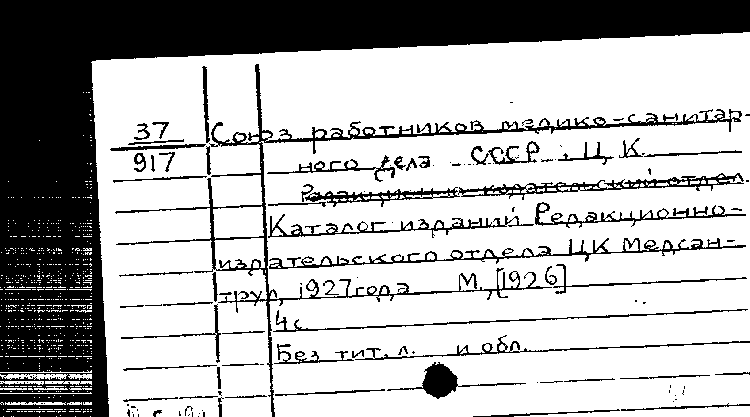 37
917
Союз работников медико-санитар-
ного дела СССР. Ц.К.
Редакционно-издательский отдел
Каталог изданий Редакционно-
издательского отдела ЦК Медсан-
труд, 1927 года М., [1926]
4 с
Без тит. л. и обл.